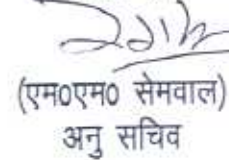 (एम0एम0 सेमवाल)
अनु सचिव